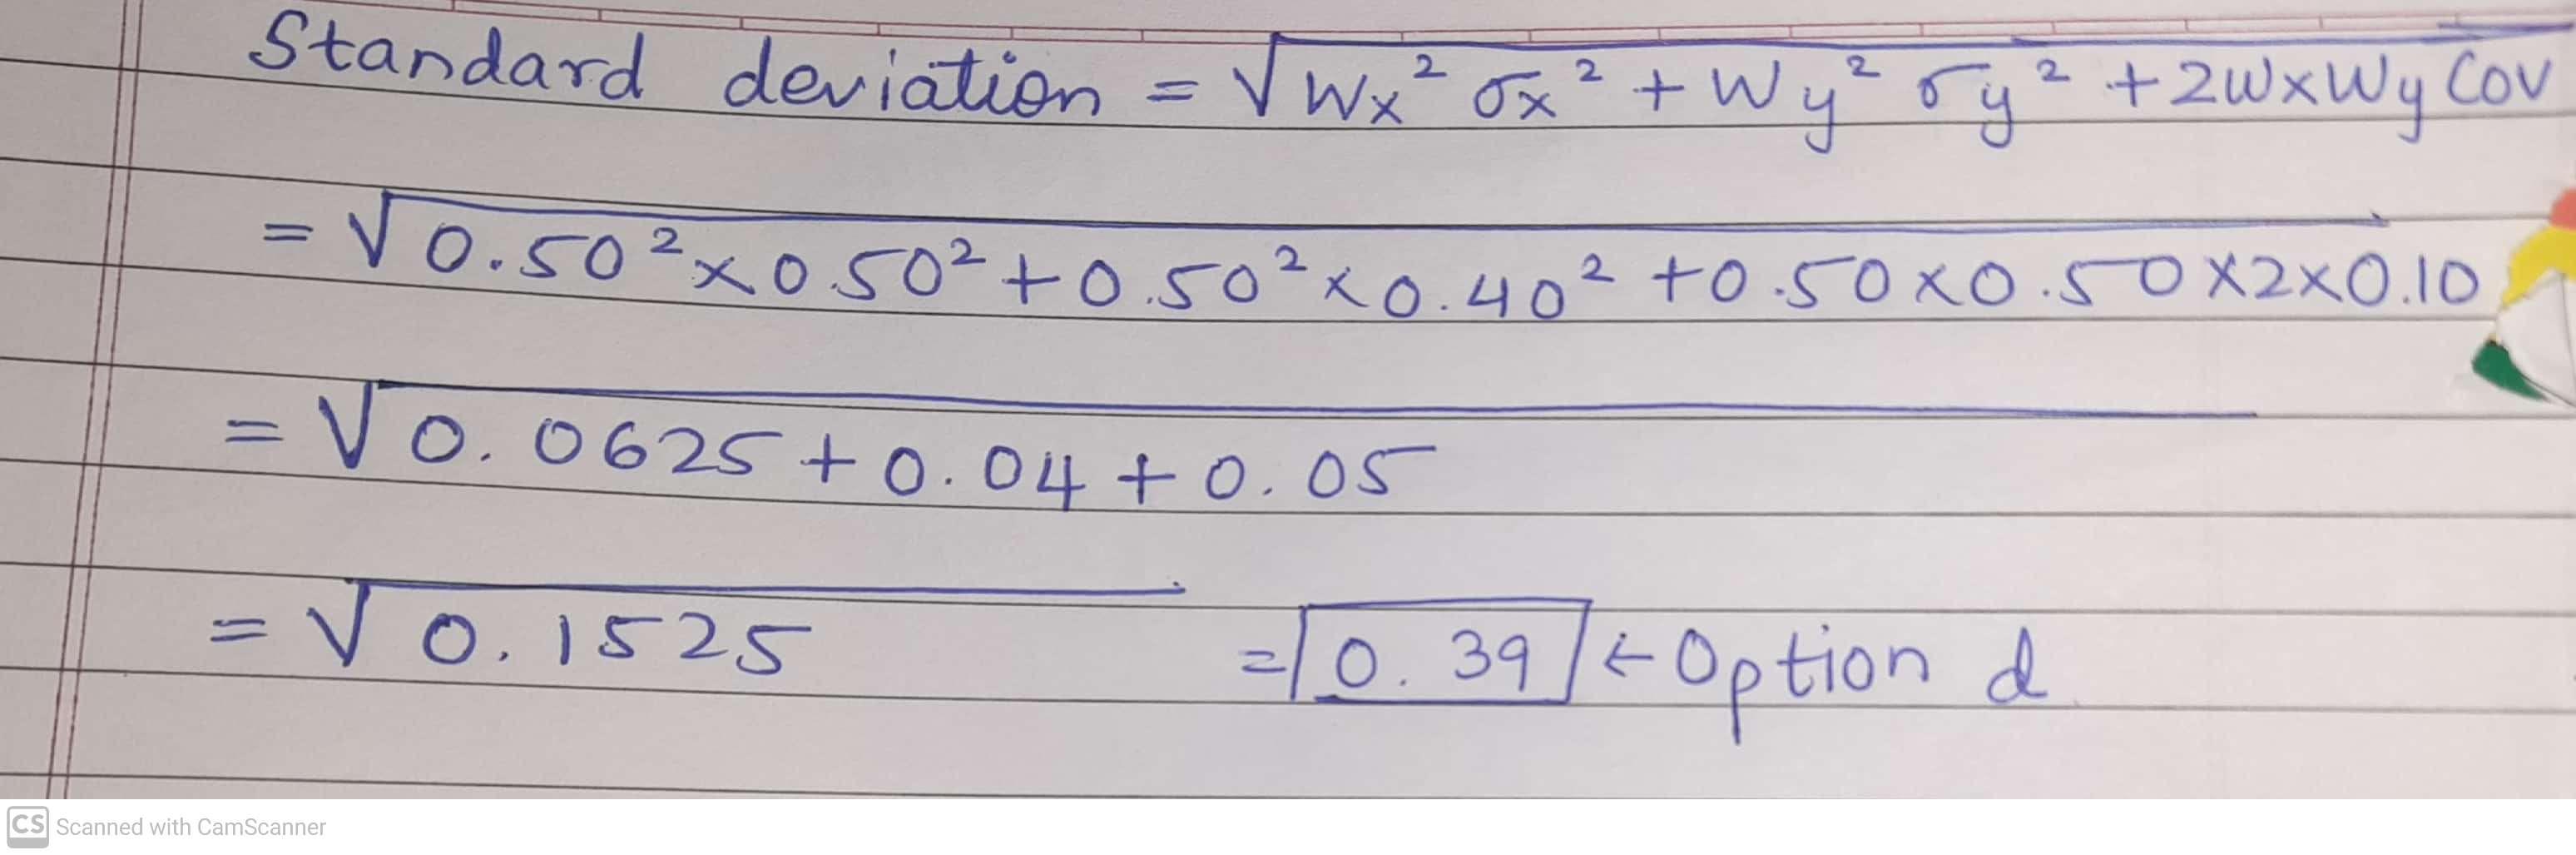 Standard deviation = √Wx² σx² + Wy² σy² + 2WxWy Cov
= √0.50² x 0.50² + 0.50² x 0.40² + 0.50 x 0.50 x 2 x 0.10
= √0.0625 + 0.04 + 0.05
= √0.1525 = 0.39 ← Option d
CS Scanned with CamScanner